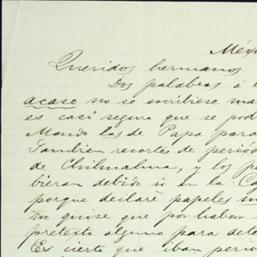 Méx
Queridos hermanos
Dos palabras á e
acaso no se escribiese ma
es casi seguro que se pod
Mando las de Papa para
Tambien recortes de periód
de Chihuahua, y los p
bieran debido ir en la Ca
porque declaré papeles
no quise que por haber
pretexto alguno para dete
Es cierto que iban perió